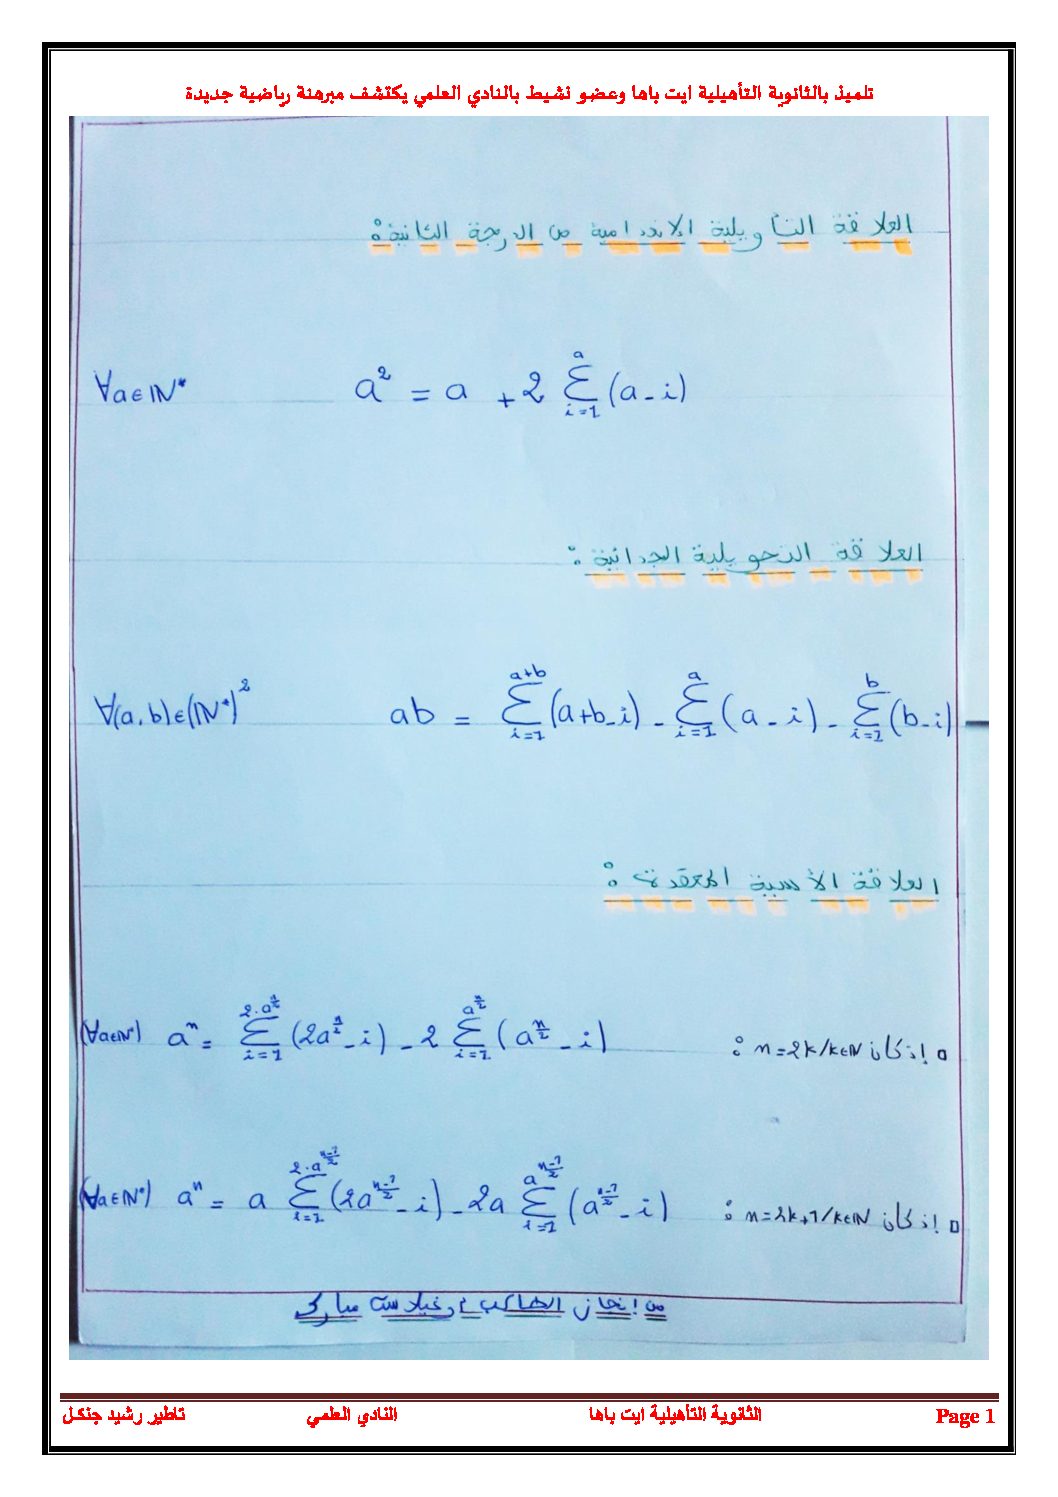 تلميذ بالثانوية التأهيلية ايت باها وعضو نشيط بالنادي العلمي يكتشف مبرهنة رياضية جديدة
العلاقة التأويلية الانعدامية من الدرجة الثانية:
∀a∈IN* a² = a + 2 Σ_{i=1}^{a} (a-i)
العلاقة التحويلية الجدائية:
∀(a,b)∈(IN*)² ab = Σ_{i=1}^{a+b} (a+b-i) - Σ_{i=1}^{a} (a-i) - Σ_{i=1}^{b} (b-i)
العلاقة الأسية المعقدة:
(∀a∈IN*) a^n = Σ_{i=1}^{2·a^{n/2}} (2a^{n/2}-i) - 2 Σ_{i=1}^{a^{n/2}} (a^{n/2}-i) □ إذ كان n=2k/k∈IN :
(∀a∈IN*) a^n = a Σ_{i=1}^{2·a^{(n-1)/2}} (2a^{(n-1)/2}-i) - 2a Σ_{i=1}^{a^{(n-1)/2}} (a^{(n-1)/2}-i) □ إذ كان n=2k+1/k∈IN :
من إنجاز الطالب: مبارك
تاطير رشيد جنكل النادي العلمي الثانوية التأهيلية ايت باها Page 1